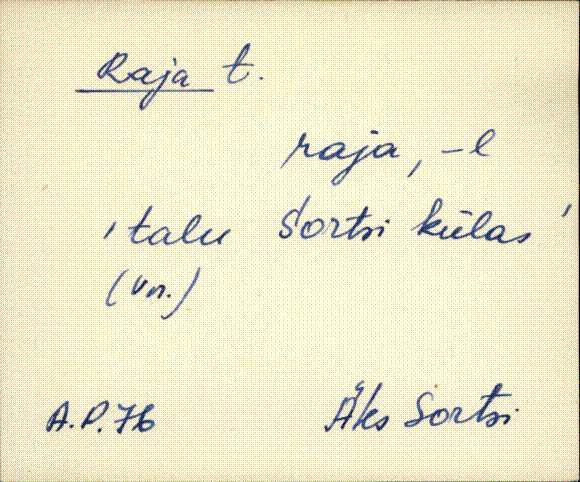 Raja t.
raja, -l
'talu Sortsi külas'
(vn.)
A.P.76 Äks Sortsi